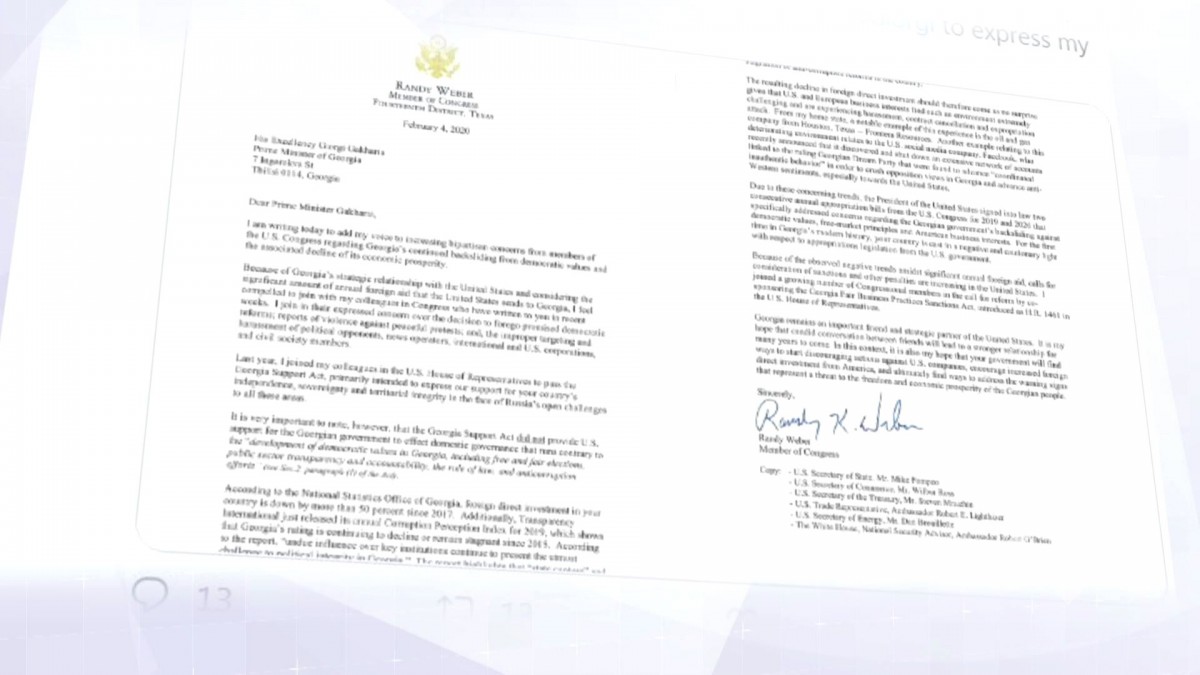 to express my
RANDY WEBER
MEMBER OF CONGRESS
FOURTEENTH DISTRICT, TEXAS
February 4, 2020
His Excellency Giorgi Gakharia
Prime Minister of Georgia
7 Ingorokva St
Tbilisi 0114, Georgia
Dear Prime Minister Gakharia,
I am writing today to add my voice to increasing bipartisan concerns from members of
the U.S. Congress regarding Georgia's continued backsliding from democratic values and
the associated decline of its economic prosperity.
Because of Georgia's strategic relationship with the United States and considering the
significant amount of annual foreign aid that the United States sends to Georgia, I feel
compelled to join with my colleagues in Congress who have written to you in recent
weeks. I join in their expressed concern over the decision to forego promised democratic
reforms; reports of violence against peaceful protests; and, the improper targeting and
harassment of political opponents, news operators, international and U.S. corporations,
and civil society members.
Last year, I joined my colleagues in the U.S. House of Representatives to pass the
Georgia Support Act, primarily intended to express our support for your country's
independence, sovereignty and territorial integrity in the face of Russia's open challenges
to all these areas.
It is very important to note, however, that the Georgia Support Act did not provide U.S.
support for the Georgian government to effect domestic governance that runs contrary to
the "development of democratic values in Georgia, including free and fair elections,
public sector transparency and accountability, the rule of law, and anticorruption
efforts" (see Sec.2 paragraph (7) of the Act).
According to the National Statistics Office of Georgia, foreign direct investment in your
country is down by more than 50 percent since 2017. Additionally, Transparency
International just released its annual Corruption Perception Index for 2019, which shows
that Georgia's rating is continuing to decline or remain stagnant since 2015. According
to the report, "undue influence over key institutions continue to present the utmost
challenge to political integrity in Georgia." The report highlights that "state capture" and
The resulting decline in foreign direct investment should therefore come as no surprise
given that U.S. and European business interests find such an environment extremely
challenging and are experiencing harassment, contract cancellation and expropriation
attack. From my home state, a notable example of this experience is the oil and gas
company from Houston, Texas – Frontera Resources. Another example relating to this
deteriorating environment relates to the U.S. social media company, Facebook, who
recently announced that it discovered and shut down an extensive network of accounts
linked to the ruling Georgian Dream Party that were found to advance "coordinated
inauthentic behavior" in order to crush opposition views in Georgia and advance anti-
Western sentiments, especially towards the United States.
Due to these concerning trends, the President of the United States signed into law two
consecutive annual appropriation bills from the U.S. Congress for 2019 and 2020 that
specifically addressed concerns regarding the Georgian government's backsliding against
democratic values, free-market principles and American business interests. For the first
time in Georgia's modern history, your country is cast in a negative and cautionary light
with respect to appropriations legislation from the U.S. government.
Because of the observed negative trends amidst significant annual foreign aid, calls for
consideration of sanctions and other penalties are increasing in the United States. I
joined a growing number of Congressional members in the call for reform by co-
sponsoring the Georgia Fair Business Practices Sanctions Act, introduced as H.R. 1461 in
the U.S. House of Representatives.
Georgia remains an important friend and strategic partner of the United States. It is my
hope that candid conversation between friends will lead to a stronger relationship for
many years to come. In this context, it is also my hope that your government will find
ways to start discouraging actions against U.S. companies, encourage increased foreign
direct investment from America, and ultimately find ways to address the warning signs
that represent a threat to the freedom and economic prosperity of the Georgian people.
Sincerely,
Randy K. Weber
Randy Weber
Member of Congress
Copy: - U.S. Secretary of State, Mr. Mike Pompeo
- U.S. Secretary of Commerce, Mr. Wilbur Ross
- U.S. Secretary of the Treasury, Mr. Steven Mnuchin
- U.S. Trade Representative, Ambassador Robert E. Lighthizer
- U.S. Secretary of Energy, Mr. Dan Brouillette
- The White House, National Security Advisor, Ambassador Robert O'Brien
13